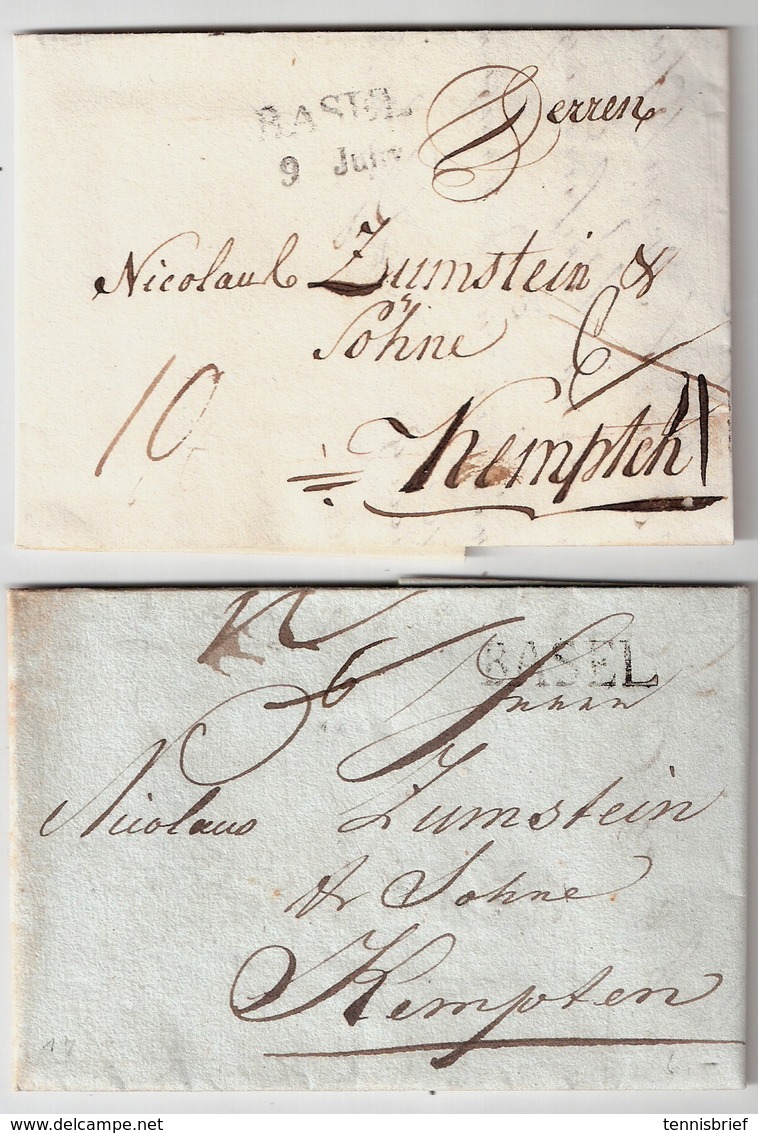 BASEL
9 Juny
Herren
Nicolaus Zumstein &
Söhne
6
10
Kempten
BASEL
6
Nicolaus Zumstein
& Sohne
Kempten
delcampe.net
tennisbrief